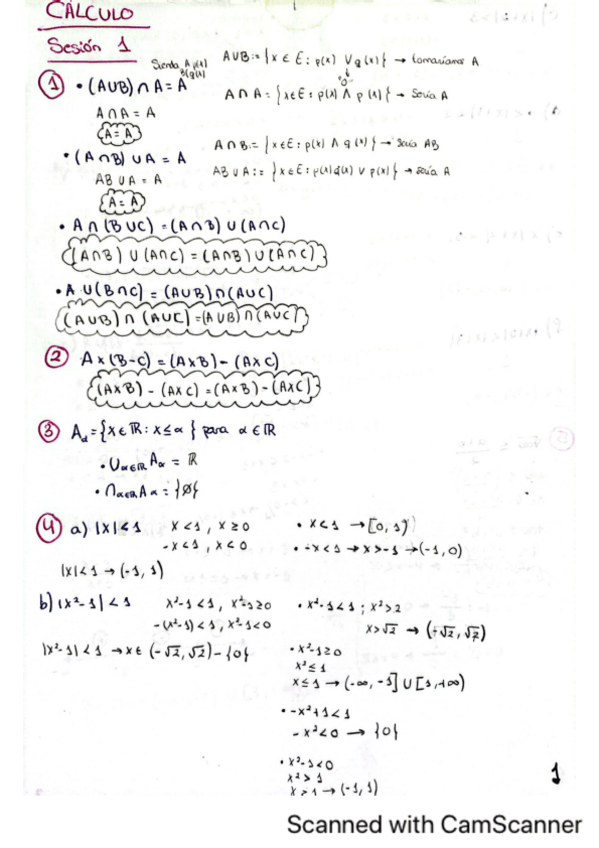 CÁLCULO
Sesión 1
Siendo A p(x)
B q(x)
A∪B := {x ∈ E : p(x) ∨ q(x)} → tomaríamos A
"o"
① • (A∪B) ∩ A = A
A∩A = {x∈E : p(x) ∧ p(x)} → Sería A
A∩A = A
A = A
• (A∩B) ∪ A = A
A∩B := {x∈E : p(x) ∧ q(x)} → sería AB
AB ∪ A = A
AB ∪ A := {x∈E : p(x)q(x) ∨ p(x)} → sería A
A = A
• A∩(B∪C) = (A∩B)∪(A∩C)
(A∩B) ∪ (A∩C) = (A∩B)∪(A∩C)
• A∪(B∩C) = (A∪B)∩(A∪C)
(A∪B)∩(A∪C) = (A∪B)∩(A∪C)
② A×(B-C) = (A×B) - (A×C)
(A×B) - (A×C) = (A×B) - (A×C)
③ Aα = {x∈ℝ : x≤α} para α∈ℝ
• ∪α∈ℝ Aα = ℝ
• ∩α∈ℝ Aα = {∅}
④ a) |x|<1 x<1, x≥0 • x<1 → [0,1)
-x<1, x<0 • -x<1 → x>-1 → (-1,0)
|x|<1 → (-1,1)
b) |x²-1|<1 x²-1<1, x²-1≥0 • x²-1<1; x²>2
-(x²-1)<1, x²-1<0 x>√2 → (-√2,√2)
|x²-1|<1 → x∈(-√2,√2)-{0} • x²-1≥0
x²≤1
x≤1 → (-∞,-1]∪[1,+∞)
• -x²+1<1
-x²<0 → {0}
• x²-1<0
x²>1
x>1 → (-1,1)
1
Scanned with CamScanner